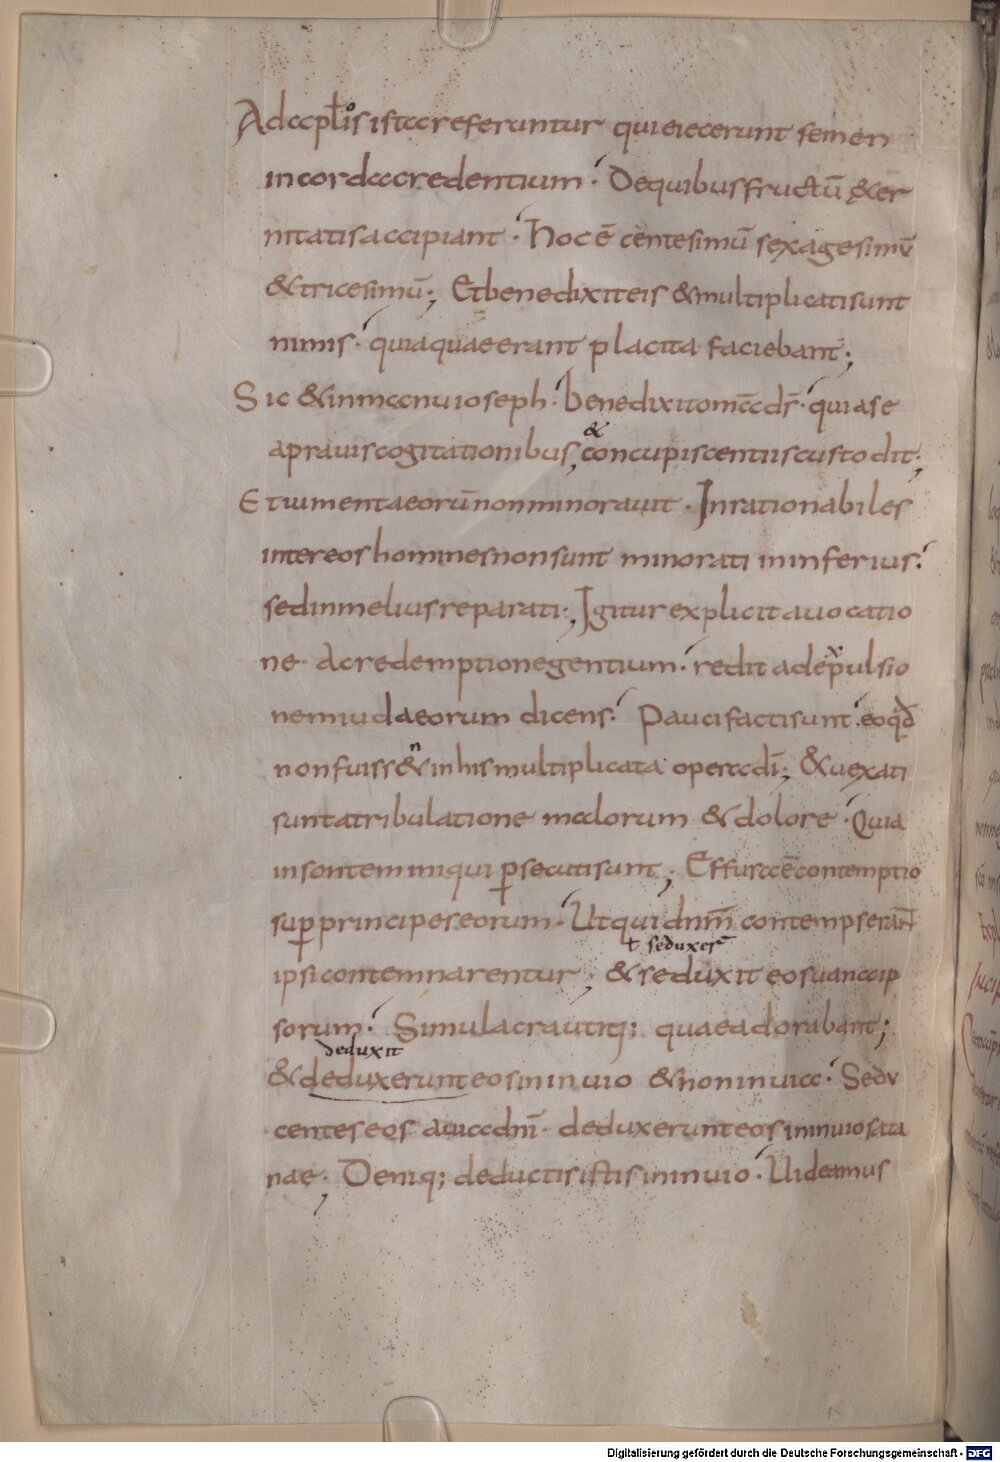 Adapłos ista referuntur quieiecerunt semen
incorda credentium · Dequibus fructū &er
nitatis accipiant · Hoc ē centesimū sexagesimū
& tricesimū; Et benedixit eis & multiplicati sunt
nimis · quia quae erant placita faciebant;
Sic & in manu ioseph · benedixit oma ds̄ · quia se
aprauis cogitationibus, & concupiscentiis custodit;
Et iumenta eorū non minorauit · Inrationabiles
inter eos homines non sunt minorati in inferius ·
sed in melius reparati; Igitur explicita uocatio
ne · ac redemptione gentium · redit ad expulsio
nem iudaeorum dicens · Pauci facti sunt · eo qd̄
non fuiss&n in his multiplicata opera dī; & uexati
sunt a tribulatione malorum & dolore · Quia
insontem iniqui psecuti sunt; Effusa ē contemptio
sup principes eorum · Ut qui dnm̄ contempserant
ł seduxer̄
ipsi contemnarentur; & seduxit eos uana ip
sorum · Simulacra utiq; quae adorabant;
deduxit
& deduxerunt eos in inuio & non in uia · Sedu
centes eos a uia dnī · deduxerunt eos in inuio sata
nae; Deniq; deductis istis in inuio · Uideamus
Digitalisierung gefördert durch die Deutsche Forschungsgemeinschaft - DFG